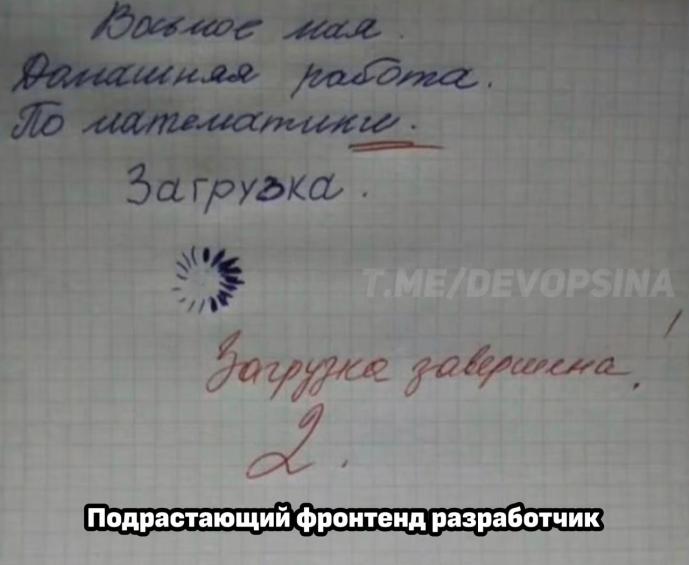 Восьмое мая.
Домашняя работа.
По математики.
Загрузка.
T.ME/DEVOPSINA
Загрузка завершена!
2.
Подрастающий фронтенд разработчик